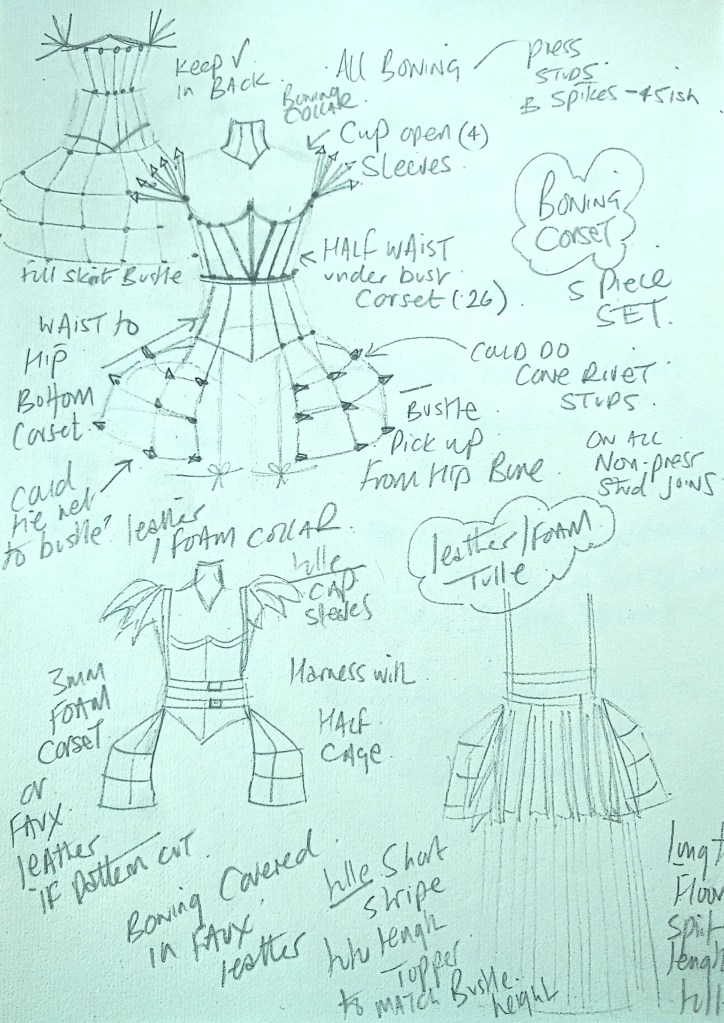 Keep ✓
in BACK
All BONING
press
studs
& Spikes - 45ish
Boning
COLLAR
Cup open (4)
Sleeves
BONING
CORSET
5 Piece
SET.
Full Skirt Bustle
HALF WAIST
under bust
Corset (26)
WAIST to
Hip
Bottom
Corset
Could DO
Cone Rivet
STUDS
Bustle
Pick up
from Hip Bone
ON ALL
Non-press
Stud joins
Could
tie net
to bustle?
leather
/ FOAM COLLAR
leather / FOAM
Tulle
tulle
CAP
Sleeves
3mm
FOAM
Corset
or
FAUX
leather
IF Pattern CUT
Harness with
HALF
CAGE
Boning Covered
in FAUX
leather
tulle Short
Stripe
tutu length
Topper
to MATCH Bustle
height
Floor
split
length